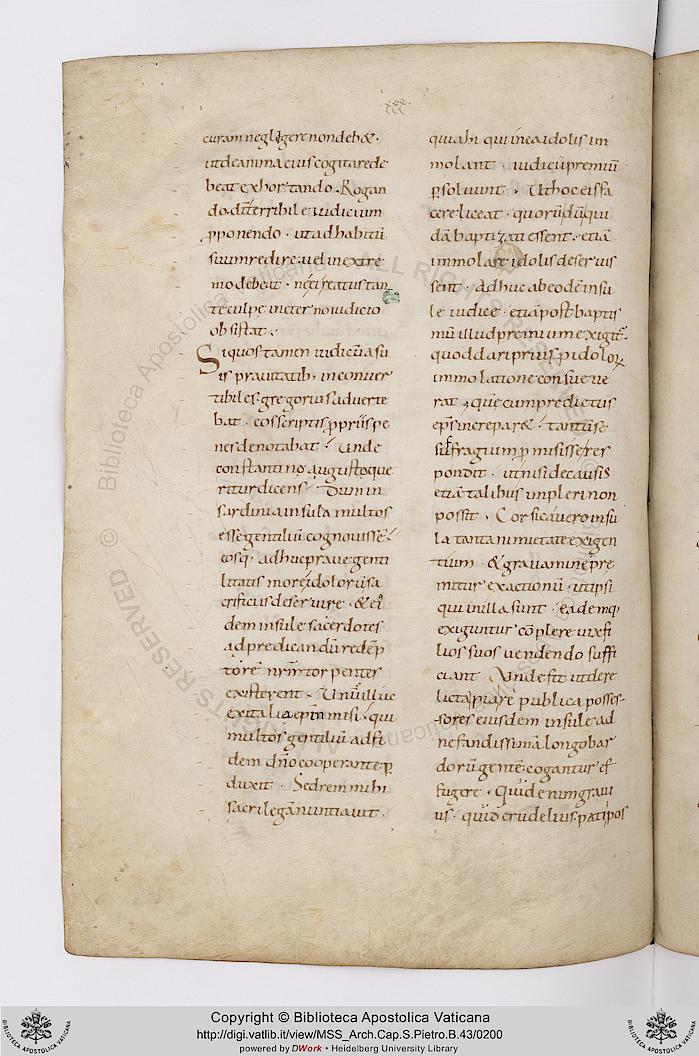 curam neglegere non debet.
ut de anima eius cogitare de
beat exhortando. Rogan
do. diterribile iudicium
pponendo. ut ad habitū
suum redire. uel in extre
mo debeat. ne ei reatus tan
te culpe in eterno iudicio
obsistat.
Si quos tamen iudicū a su
is prauitatib; in conuer
tibiles. gregorius aduerte
bat. eos scriptis ppriis pe
nes denotabat. Unde
constantino augusto que
ritur dicens. Dum in
sardinia insula multos
esse gentiliū cognouissē.
eosq; adhuc praue genti
litatis more idoloru sa
crificiis deseruire. & ei
dem insule sacerdotes
ad predicandū redēp
torē nrm torpentes
existerent. Unū illuc
ex italia epm misi. qui
multos gentiliū ad fi
dem dno cooperante p
duxit. Sed rem mihi
sacrilegā nuntiauit.
quia hi qui in ea idolis im
molant. iudici premiū
psoluunt. Ut hoc eis fa
cere liceat. quorū dū qui
dā baptizati essent. etiā
immolare idolis deseruis
sent. Adhuc ab eodē insu
le iudice. etiā post baptis
mū illud premium exigit.
quod dari prius p idolor
immolatione consueue
rat. quē cum predictus
eps increparet. tantū se
suffragium pmisisse res
pondit. ut nisi de causis
etiā talibus impleri non
possit. Corsica uero insu
la tanta nimietate exigen
tium. & grauamine pre
mitur exactionū. ut ipsi
qui in illa sunt. eadem q;
exiguntur cōplere uix fi
lios suos uendendo suffi
ciant. Unde fit ut dere
licta piare publica posses
sores eiusdem insule ad
nefandissimā longobar
dorū gentē. cogantur ef
fugere. Quid enim graui
us. quid crudelius. pati pos
Copyright © Biblioteca Apostolica Vaticana
http://digi.vatlib.it/view/MSS_Arch.Cap.S.Pietro.B.43/0200
powered by DWork • Heidelberg University Library